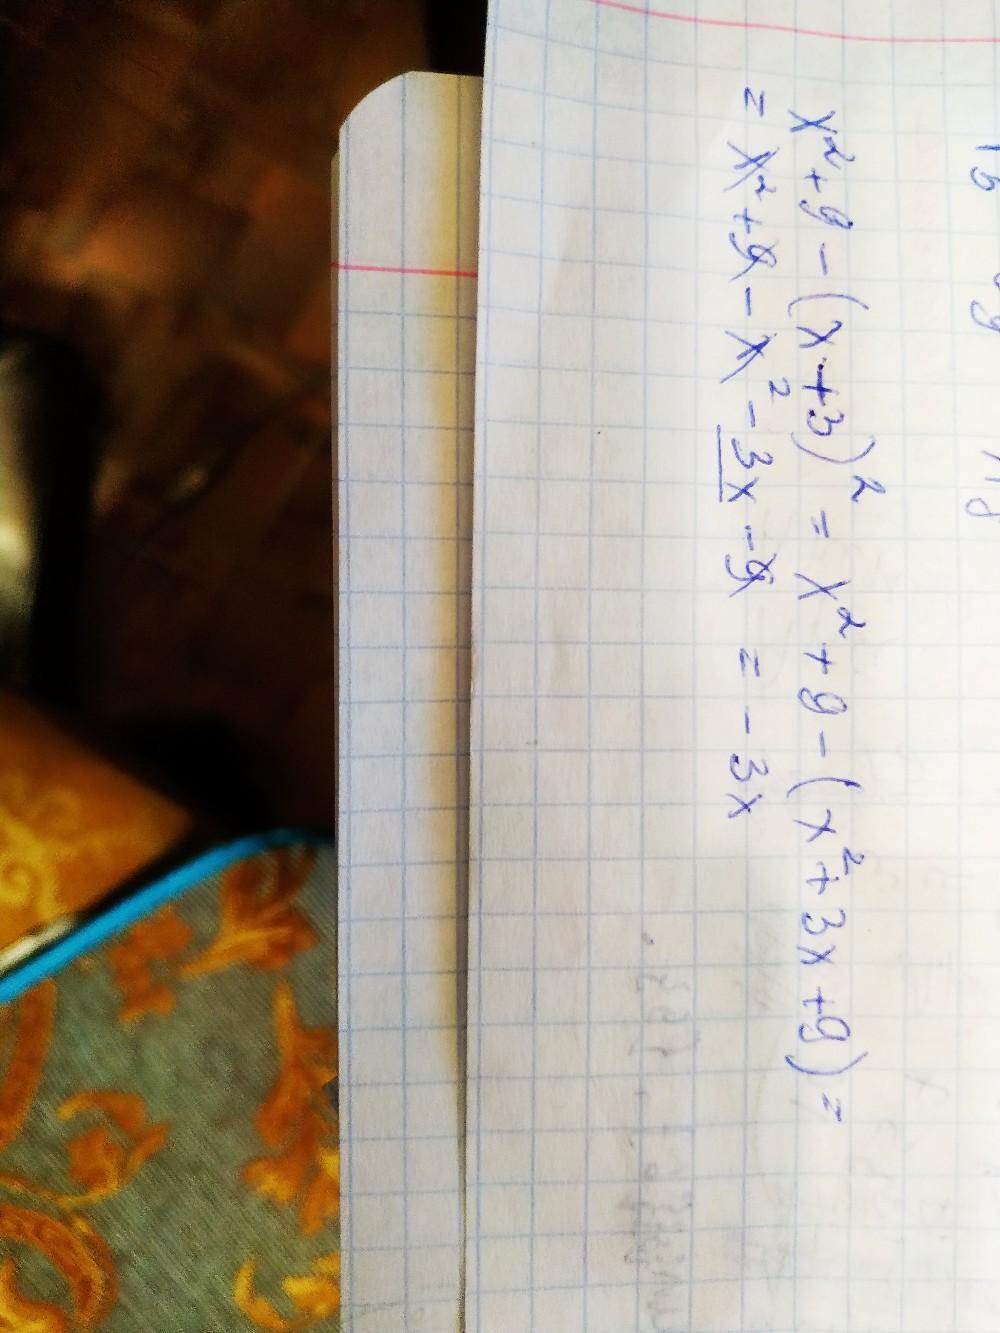 x² + 9 - (x + 3)² = x² + 9 - (x² + 3x + 9) =
= x² + 9 - x² - 3x - 9 = - 3x